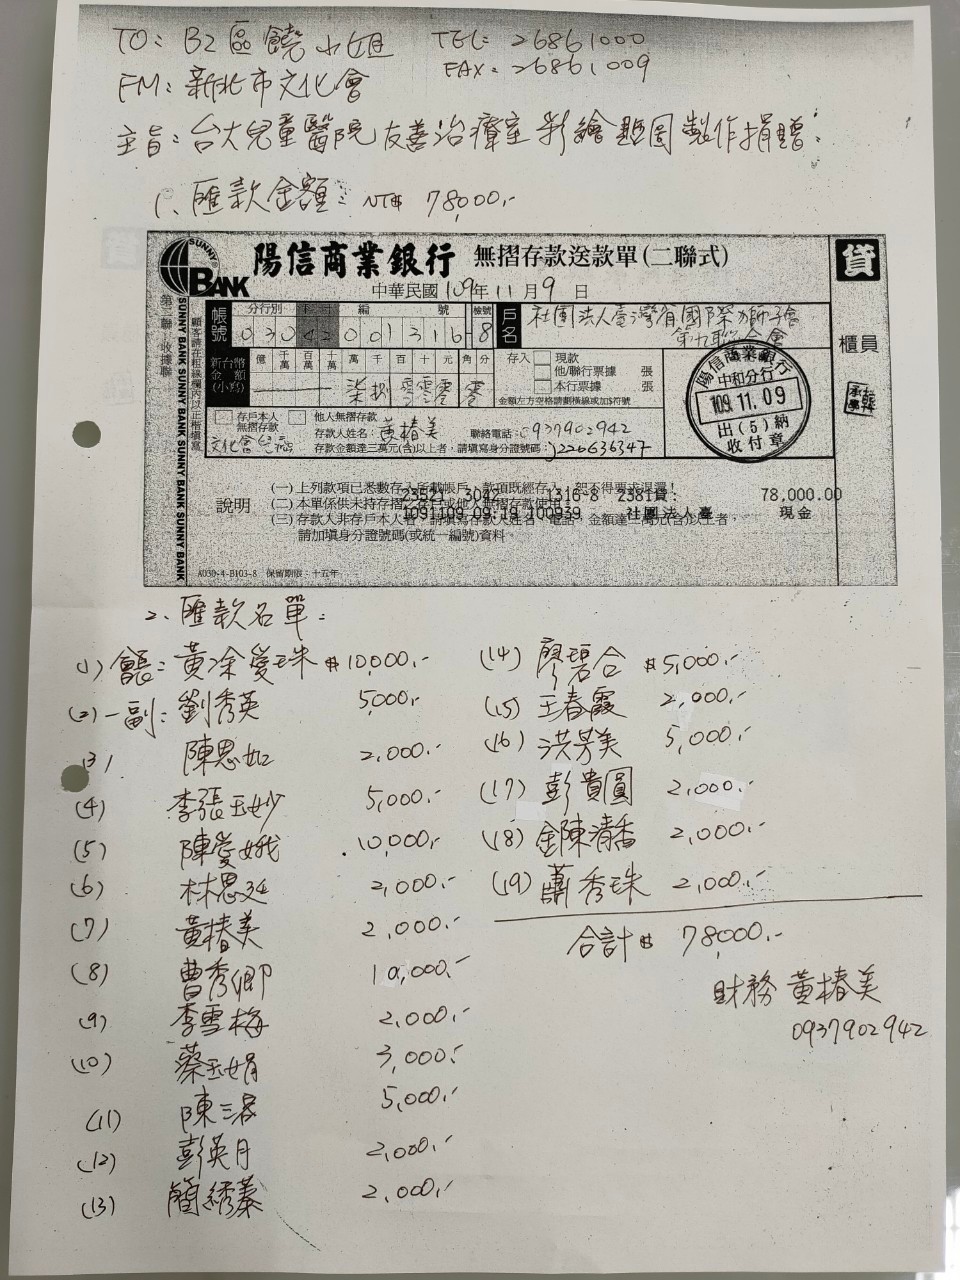 TO: B2區饒小姐 TEL: 26861000
FM: 新北市文化會 FAX: 26861009
主旨: 台大兒童醫院友善治療室彩繪 製作捐贈:
1、匯款金額: NT$ 78,000.-
SUNNY BANK 陽信商業銀行 無摺存款送款單(二聯式) 貸
中華民國 109年 11月 9日
第二聯:收據聯
SUNNY BANK SUNNY BANK SUNNY BANK SUNNY BANK SUNNY BANK
顧客請在粗線欄內以正楷填寫
帳號 分行別 編 號 檢號
03042001316-8
戶名 社團法人臺灣省國際獅子會
第九聯合會
櫃員
新台幣金額(小寫) 億 千萬 百萬 十萬 萬 千 百 十 元 角 分
柒 捌 零 零 零 零
存入 現款
他/聯行票據 張
本行票據 張
金額左方空格請劃橫線或加$符號
陽信商業銀行
中和分行
109.11.09
出(5)納
收付章
存戶本人無摺存款 他人無摺存款
存款人姓名: 黃椿美 聯絡電話: 0937902942
存款金額達三萬元(含)以上者,請填寫身分證號碼: J220636347
說明
(一)上列款項已悉數存入所載帳戶,款項既經存入,恕不得要求退還!
(二)本單係供未持存摺之存戶或他人無摺存款使用。
(三)存款人非存戶本人者,請填寫存款人姓名、電話,金額達三萬元(含)以上者,
請加填身分證號碼(或統一編號)資料。
23521 3042 1316-8 2381貸: 78,000.00
1091109 09:19 100939 社團法人臺 現金
A030-4-B103-8 保留期限:十五年
2、匯款名單:
(1) 會長: 黃涂愛珠 $10,000.-
(2) 一副: 劉秀英 5,000.-
(3) 陳思如 2,000.-
(4) 李張玉妙 5,000.-
(5) 陳愛娥 10,000.-
(6) 林思延 2,000.-
(7) 黃椿美 2,000.-
(8) 曹秀卿 10,000.-
(9) 李雪梅 2,000.-
(10) 蔡玉娟 3,000.-
(11) 陳三春 5,000.-
(12) 彭英月 2,000.-
(13) 簡綉蓁 2,000.-
(14) 廖碧合 $5,000.-
(15) 王春霞 2,000.-
(16) 洪芳美 5,000.-
(17) 彭貴圓 2,000.-
(18) 金陳清香 2,000.-
(19) 蕭秀珠 2,000.-
合計$ 78,000.-
財務 黃椿美
0937902942